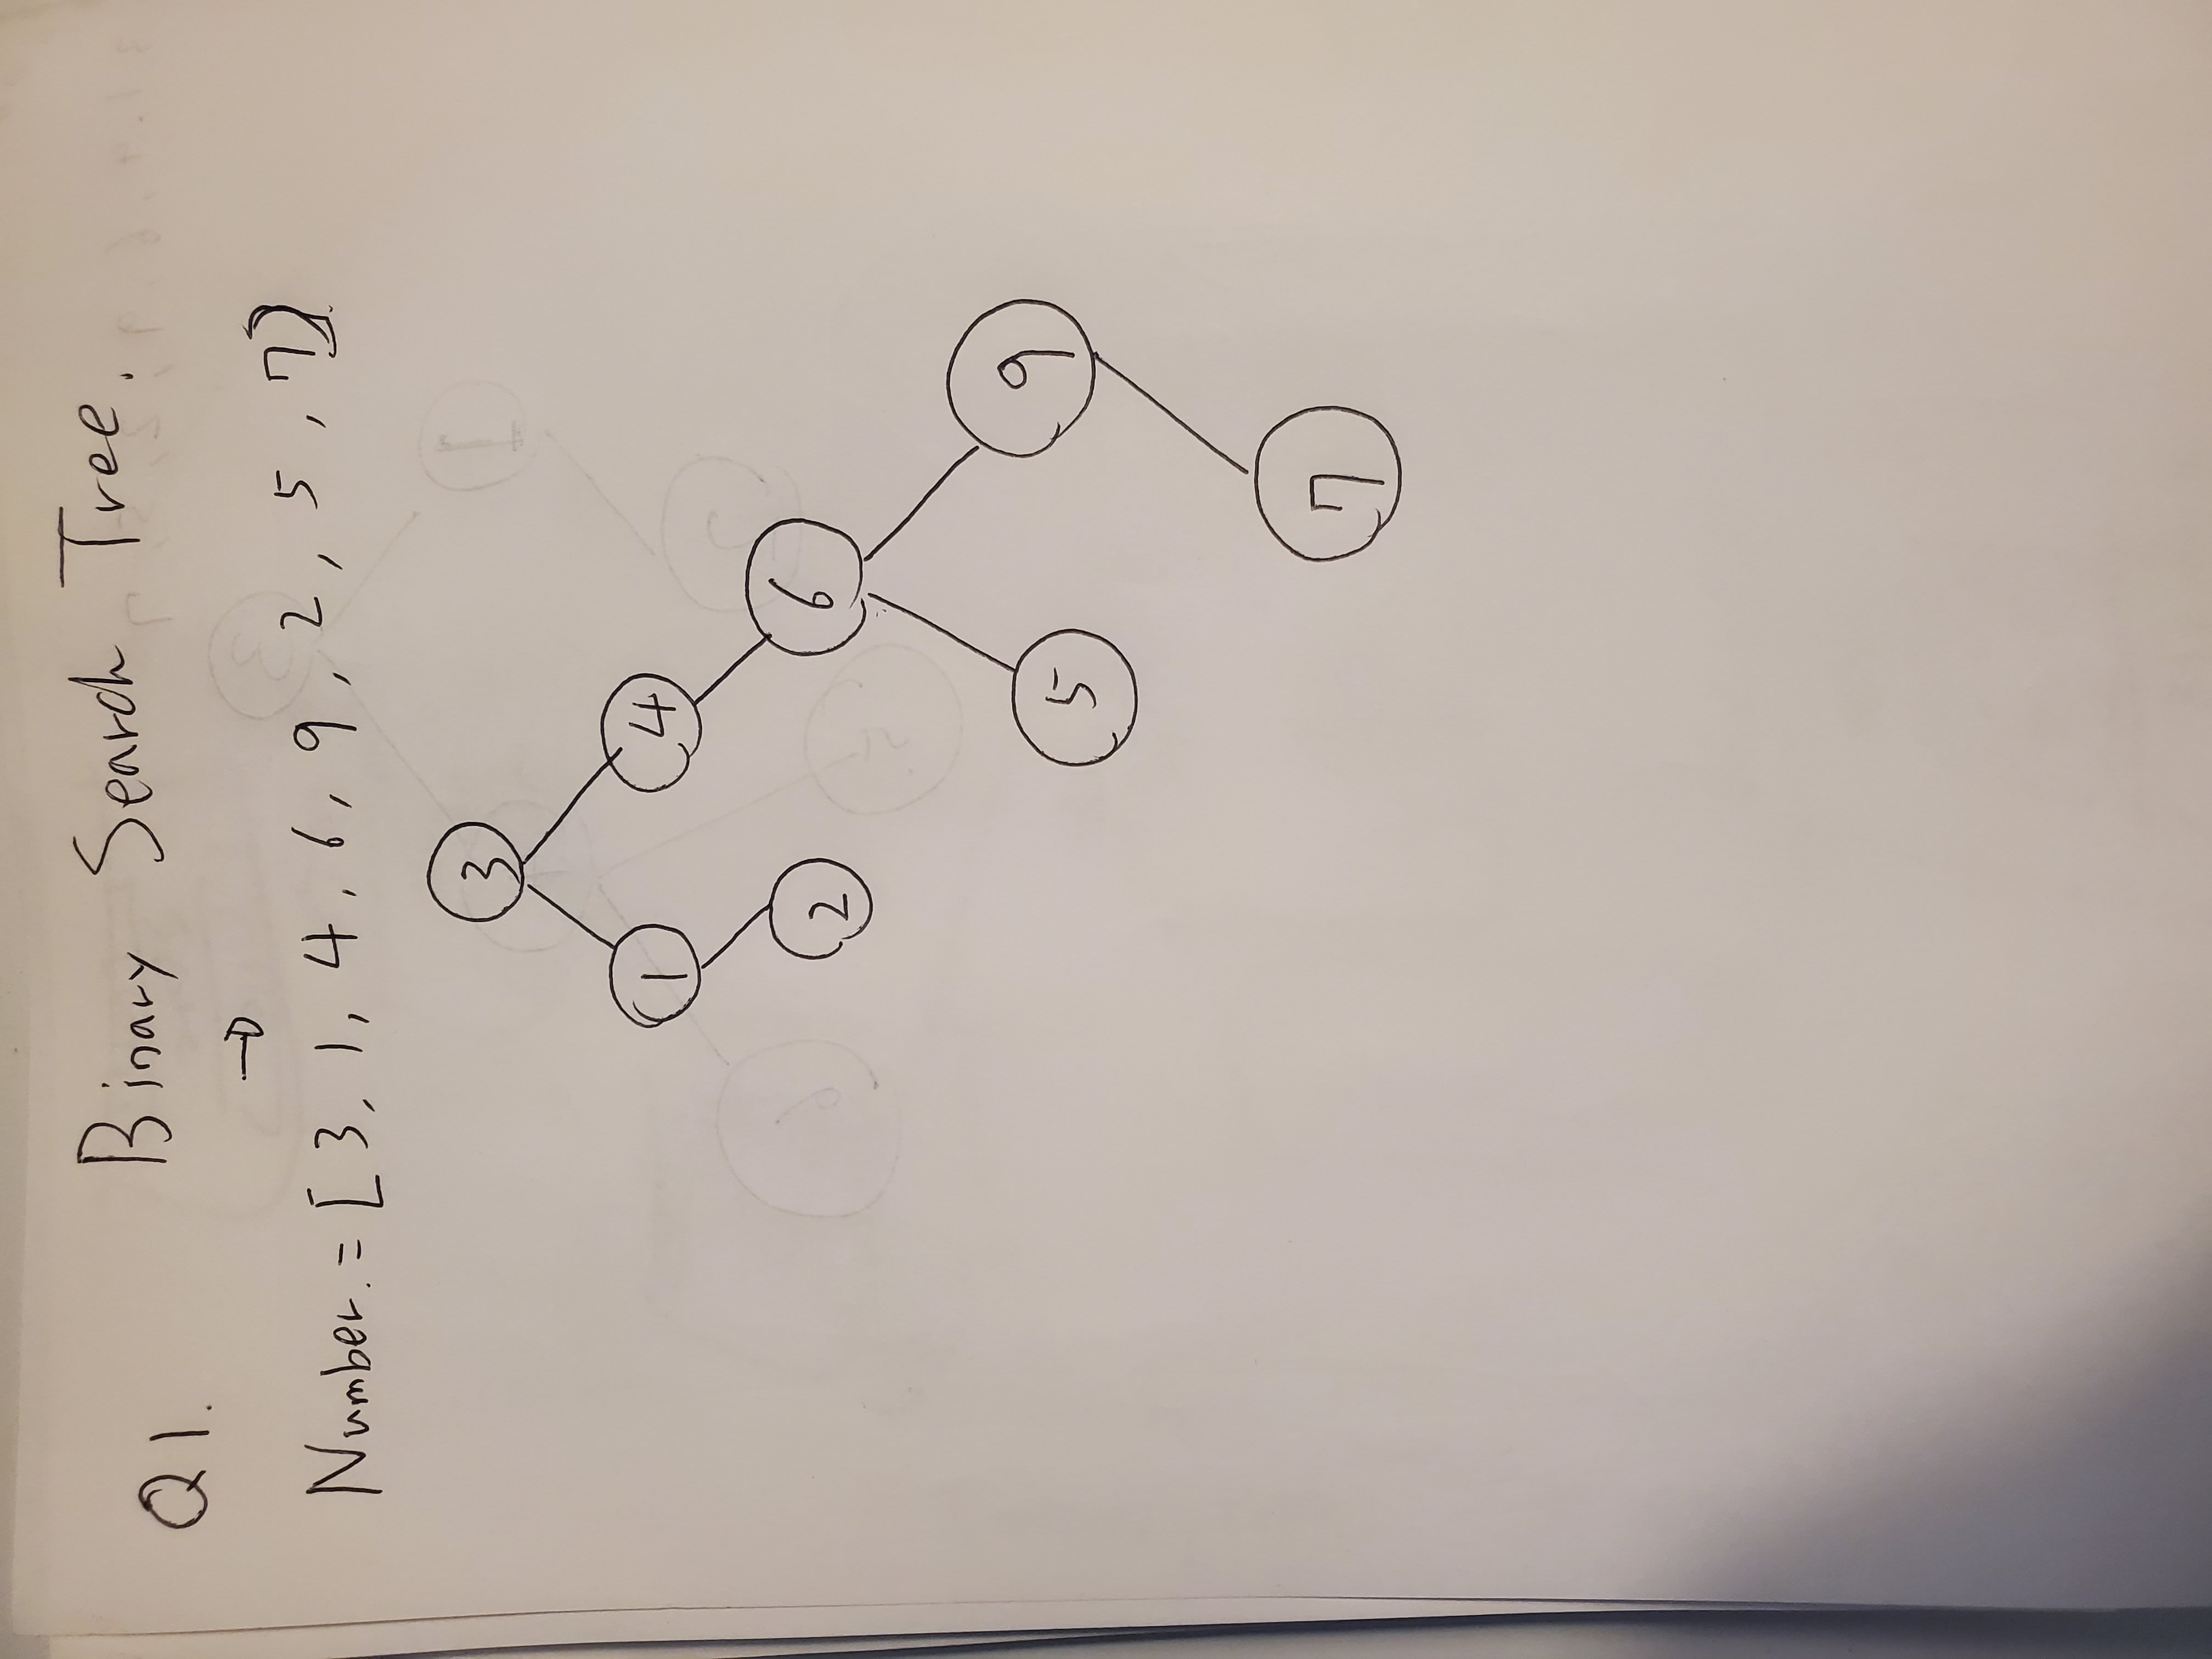 Binary Search Tree.
Q1.
Number. = [3, 1, 4, 6, 9, 2, 5, 7]
3
1 4
2 6
5 9
7